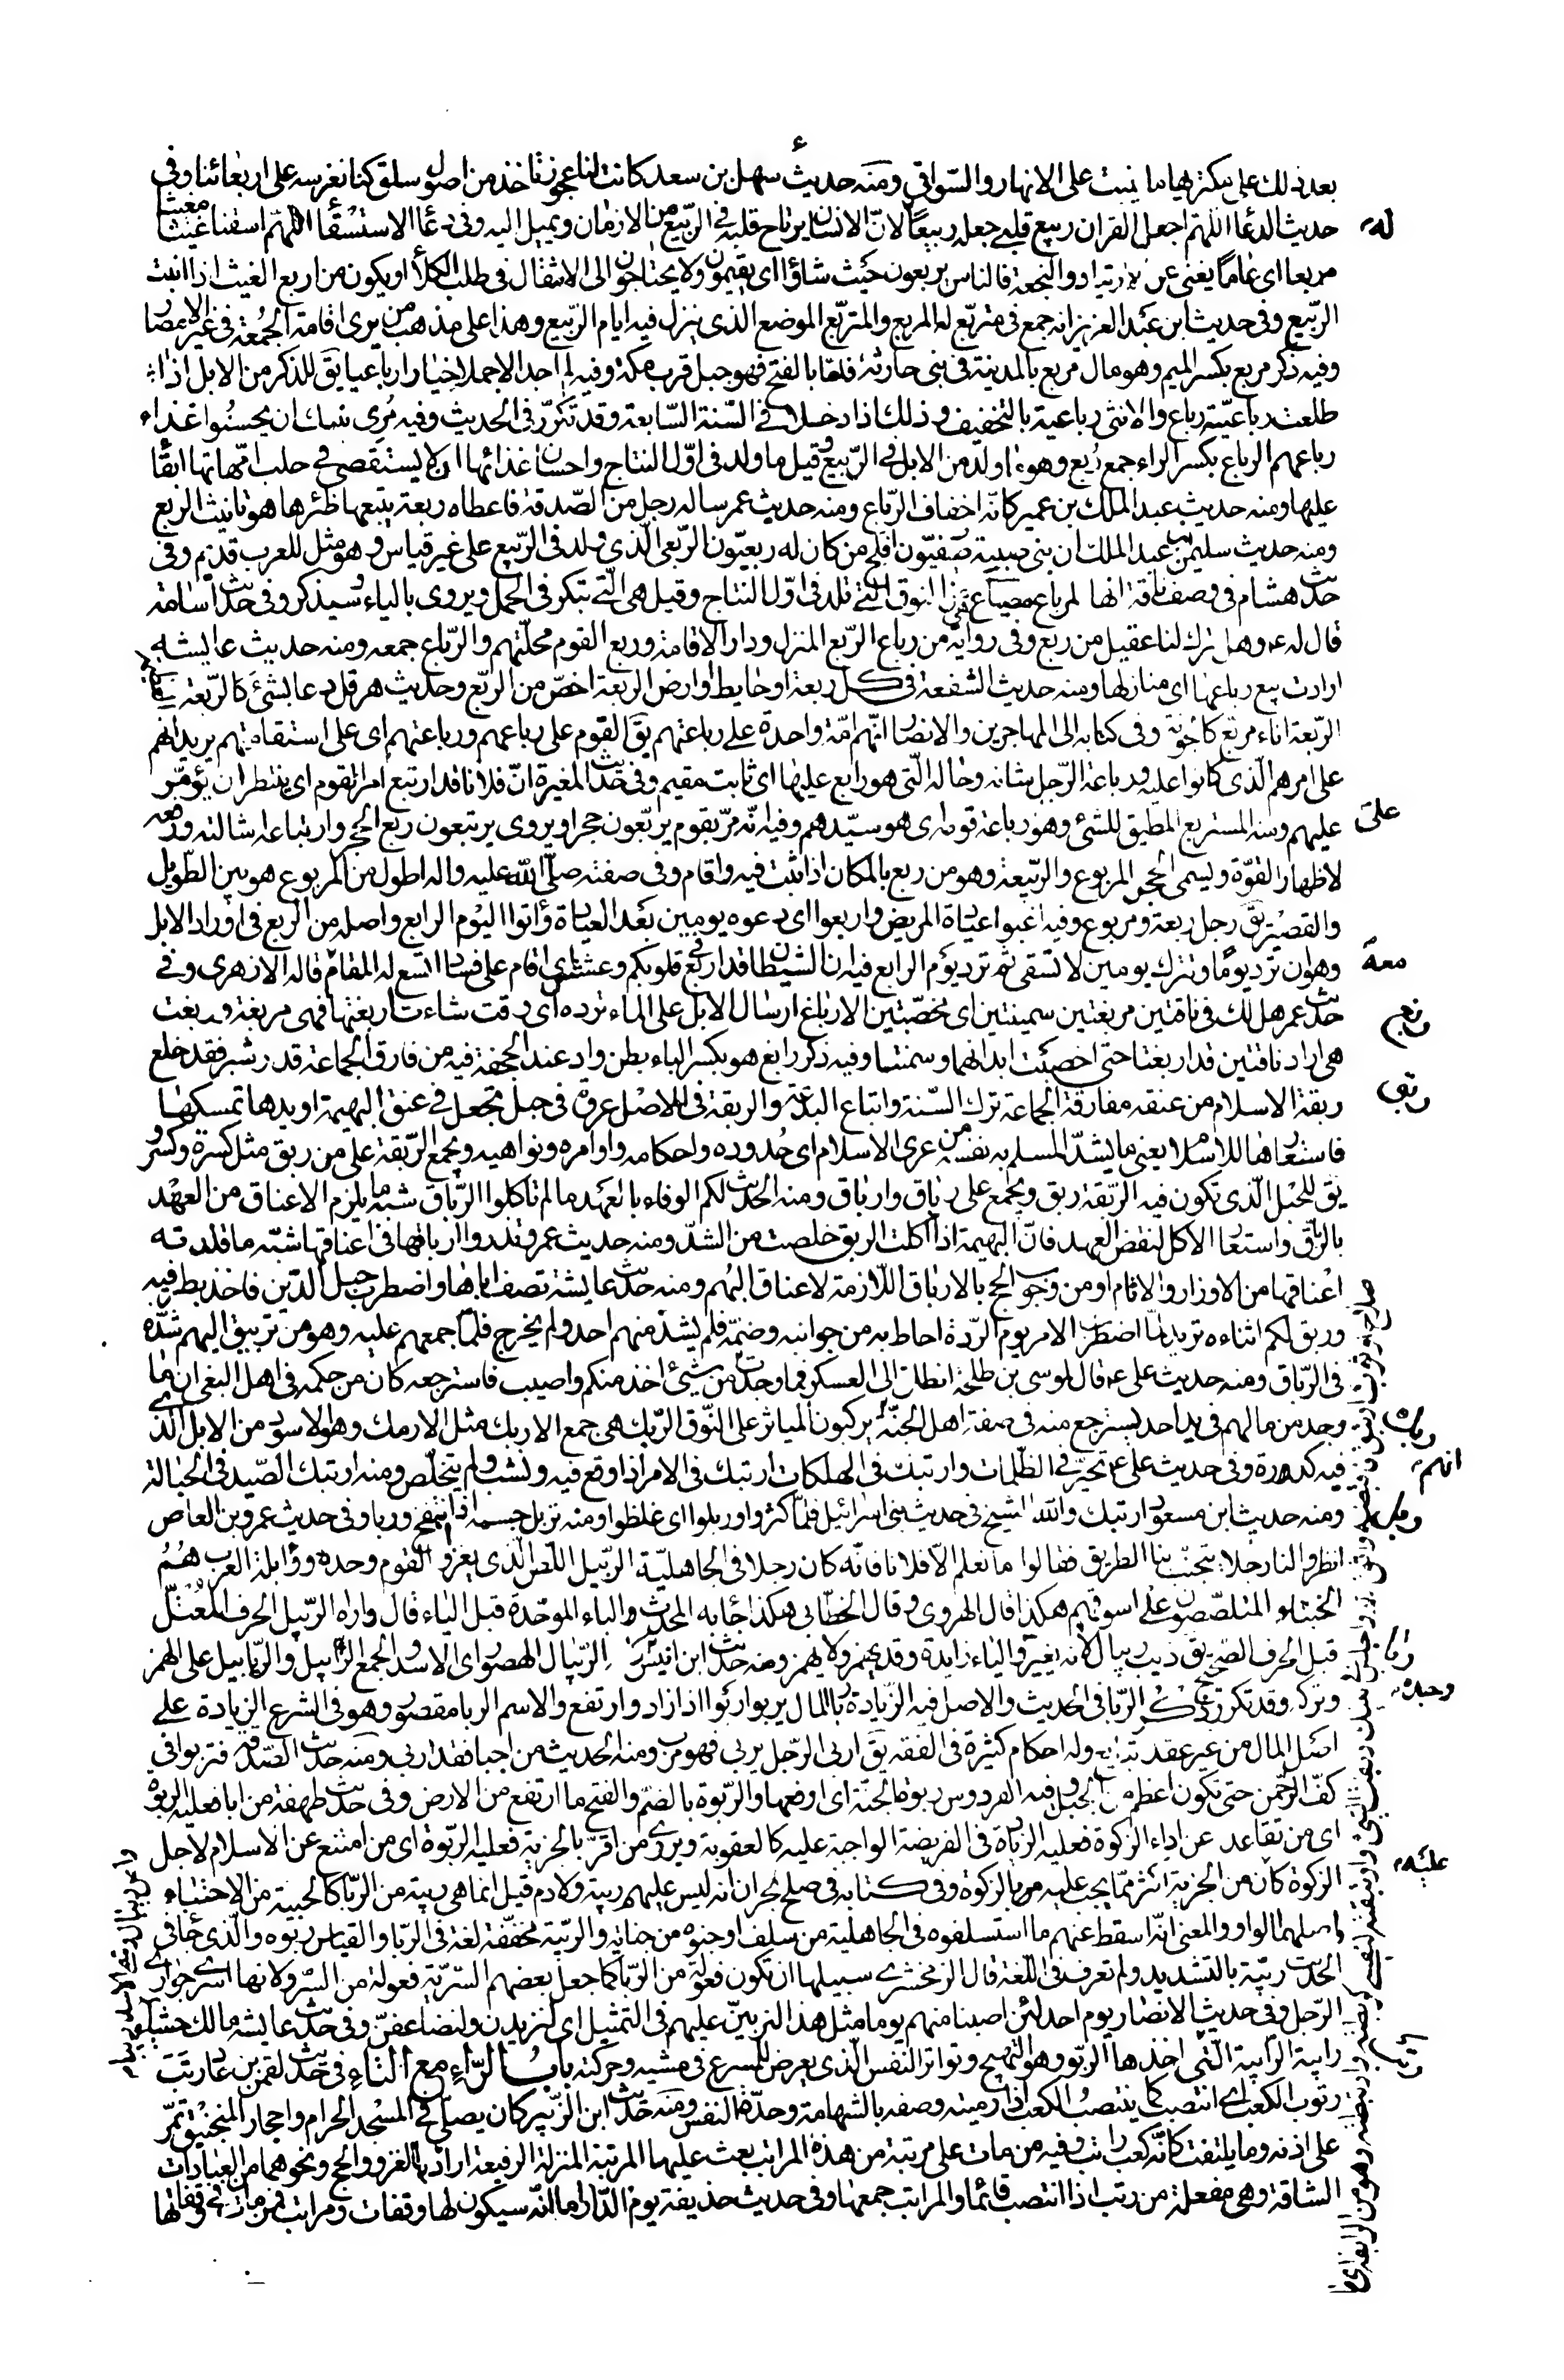 بعد ذلك على بكترها ما ينبت على الانهار والسّواقي ومنه حديث سهل بن سعد كانت لنا عجوز تاخذ من اصول سلق كنا نغرسه على اربعائنا وفى
حديث الدعاء اللهم اجعل القران ربيع قلبي جعله ربيعًا لانّ الانسان يرتاح قلبه في الرّبيع من الازمان ويميل اليه وفى دعاء الاستسقاء اللّهمّ اسقنا غيثا مغيثا
مربعا اى عاما يغنى عن الارتياد والنجعة فالناس يربعون حيث شاؤا اى يقيمون ولا يحتاجون الى الانتقال فى طلب الكلأ او يكون من اربع الغيث اذا انبت
الربيع وفى حديث ابن عبد العزيز انه جمع فى متربّع له المربع والمتربّع الموضع الذى ينزل فيه ايام الرّبيع وهذا على مذهب من يرى اقامة الجمعة فى غير الامصار
وفيه ذكر مربع بكسر الميم وهو مال مربع بالمدينة فى بنى حارثة فامّا بالفتح فهو جبل قرب مكة وفيه لم اجد الاجملا خيارا رباعيا يق للذكر من الابل اذا
طلعت رباعيّته رباع والانثى رباعية بالتخفيف وذلك اذا دخلا في السّنة السّابعة وقد تكرّر فى الحديث وفيه مُرى بنيك ان يحسنُوا غذاء
رباعهم الرباع بكسر الراء جمع رُبع وهو ما ولد من الابل فى الرّبيع وقيل ما ولد فى اوّل النتاج واحسان غذائها ان لا يستقصى في حلب امّهاتها ابقاء
عليها ومنه حديث عبد الملك بن عمير كانّه اخفاف الرّباع ومنه حديث عمر ساله رجل من الصّدقة فاعطاه ربعة يتبعها ظئرها هو تانيث الربع
ومنه حديث سليمن بن عبد الملك ان بنى صبية صيفيّون افلح من كان له ربعيّون الرّبعى الّذى ولد فى الرّبيع على غير قياس وهو مثل للعرب قديم وفى
حديث هشام فى وصف ناقة انها لمرباع مسياع هى من النوق التي تلد فى اوّل النتاج وقيل هى الّتي تبكر فى الحمل ويروى بالياء وسيذكر وفى حديث اسامة
قال له ع وهل ترك لنا عقيل من ربع وفى رواية من رباع الرّبع المنزل ودار الاقامة وربع القوم محلّتهم والرّباع جمعه ومنه حديث عايشه
ارادت بيع رباعها اى منازلها ومنه حديث الشفعة فى كل ربعة او حايط او ارض الربعة اخصّ من الرّبع وحديث هرقل دعا بشئ كالرّبعة
الرّبعة اناء مربّع كالجونة وفى كتابه الى المهاجرين والانصار انّهم امّة واحدة على رباعتهم يق القوم على رباعهم ورباعتهم اى على استقامتهم يريد انهم
على امرهم الّذى كانوا عليه ورباعة الرّجل شانه وحاله الّتى هو رابع عليها اى ثابت مقيم وفى حديث المغيرة انّ فلانا قد ارتبع امر القوم اى ينتظر ان يؤمّر
عليهم ومنه المستربع المطيق للشئ وهو رباعة قومه اى هو سيّدهم وفيه انّه مرّ بقوم يربّعون حجرا ويروى يرتبعون ربع الحجر وارتباعه اشالته ورفعه
لاظهار القوّة ويسمى الحجر المربوع والرّبيعة وهو من ربع بالمكان اذا ثبت فيه واقام وفى صفته صلّى الله عليه واله اطول من المربوع هو بين الطّويل
والقصير يق رجل ربعة ومربوع وفيه اغبّوا عيادة المريض واربعوا اى دعوه يومين بعد العيادة وأتوا اليوم الرابع واصله من الربع فى اوراد الابل
وهو ان ترد يومًا وتترك يومين لا تسقى ثم ترد يوم الرابع فيه ان الشيطان قد اربع في قلوبكم وعشش اى اقام على فساد اتّسع له المقام قاله الازهرى وفي
حديث عمر هل لك فى ناقتين مربغتين سمينتين اى مخصبتين الارباغ ارسال الابل على الماء ترده اى وقت شاءت اربغتها فهى مربغة وربغت
هى اراد ناقتين قد اربغتا حتى اخصبت ابدانهما وسمنتا وفيه ذكر رابغ هو بكسر الباء بطن واد عند الجحفة فيه من فارق الجماعة قدر شبر فقد خلع
ربقة الاسلام من عنقه مفارقة الجماعة ترك السّنة واتباع البدعة والربقة فى الاصل عروة فى حبل تجعل في عنق البهيمة او يدها تمسكها
فاستعارها للاسلام يعنى ما يشدّ المسلم به نفسه من عرى الاسلام اى حُدوده واحكامه واوامره ونواهيه ويجمع الرّبقة على ربق مثل كسرة وكسر
يق للحبل الّذى تكون فيه الرّبقة ربق ويجمع على رباق وارباق ومنه الحديث لكم الوفاء بالعهد ما لم تاكلوا الرّباق شبه ما يلزم الاعناق من العهد
بالرّباق واستعار الاكل لنقض العهد فانّ البهيمة اذا اكلت الربق خلصت من الشدّ ومنه حديث عمر وتذروا ارباقها فى اعناقها شبّه ما قلدته
اعناقها من الاوزار والاثام او من وجوب الحج بالارباق اللّازمة لاعناق البهم ومنه حديث عايشة تصف اباها واضطرب حبل الدّين فاخذ بطرفيه
وربق لكم اثناءه تريد لمّا اضطرب الامر يوم الرّدة احاط به من جوانبه وضمّه فلم يشذّ منهم احد ولم يخرج عمّا جمعهم عليه وهو من تربيق البهم شدّه
فى الرّباق ومنه حديث على ع قال لموسى بن طلحة انطلق الى العسكر فما وجدت من شئ اخذ منكم واصيب فاسترجعه كان من حكمه فى اهل البغى ان ما
وجد من مالهم فى يد احد يسترجع منه فى صفة اهل الجنّة يركبون المياثر على النّوق الرّبك هى جمع الاربك مثل الارمك وهو الاسود من الابل الذى
فيه كدورة وفى حديث على ع تحيّر في الظّلمات وارتبك فى الهلكات ارتبك فى الامر اذا وقع فيه ونشب ولم يتخلّص ومنه ارتبك الصّيد فى الحبالة
ومنه حديث ابن مسعود ارتبك والله الشيخ فى حديث بنى اسرائيل فلمّا كثروا وربلوا اى غلظوا ومنه تربل جسمه اذا انتفخ وربا وفى حديث عمرو بن العاص
انظروا لنا رجلا يتجنّب بنا الطريق فقالوا ما نعلم الّا فلانا فانّه كان ربيلا فى الجاهليّة الرّبيل اللّص الّذى يغزو القوم وحده وربابلة العرب هُمُ
الخبثاء المتلصّصون على اسوقهم هكذا قال الهروى وقال الخطّابى هكذا جاء به المحدث بالباء الموحّدة قبل الياء قال واراه الرّيبل الحرف المعتلّ
قبل الحرف الصحيح يق ذيب ريبال لانه يغير والياء زايدة وقد يهمز ولا يهمز ومنه حديث ابن انيس كانه الرّئبال الهصور اى الاسد والجمع الرّآبيل والرّيابيل على الهمز
وتركه وقد تكرر ذكر الرّبا فى الحديث والاصل فيه الزّيادة ربا المال يربو ربوا اذا زاد وارتفع والاسم الربا مقصور وهو فى الشرع الزيادة على
اصل المال من غير عقد تبايع وله احكام كثيرة فى الفقه يق اربى الرّجل يربى فهو مرب ومنه الحديث من اجبا فقد اربى ومنه حديث الصّدقة فتربو فى
كفّ الرّحمن حتى تكون اعظم من الجبل وفيه الفردوس ربوة الجنّة اى ارفعها والرّبوة بالضمّ والفتح ما ارتفع من الارض وفى حديث طهفة من ابا فعليه الربوة
اى من تقاعد عن اداء الزكوة فعليه الزيادة فى الفريضة الواجبة عليه كالعقوبة ويروى من اقرّ بالجزية فعليه الرّبوة اى من امتنع عن الاسلام لاجل
الزكوة كان من الجزية اكثر ممّا يجب عليه بالزكوة وفى كتابه فى صلح نجران انه ليس عليهم ربية ولا دم قيل انما هى ربية من الرّبا كالحبية من الاحتباء
واصلهما الواو والمعنى انّه اسقط عنهم ما استسلفوه فى الجاهلية من سلف او جنوه من جناية والربية مخفّفة لغة فى الرّبا والقياس ربوه والّذى جاء فى
الحديث ربيّة بالتشديد ولم تعرف فى اللّغة قال الزمخشرى سبيلها ان تكون فعولة من الرّبا كما جعل بعضهم السّريّة فعولة من السّرو لانها اسرى جوارى
الرّجل وفى حديث الانصار يوم احد لئن اصبنا منهم يوما مثل هذا لنربينّ عليهم فى التمثيل اى لنزيدن ولنضاعفن وفى حديث عايشه مالك حشيا
رابية الرّابية الّتى اخذها الرّبو وهو النّهيج وتواتر النّفس الّذى يعرض للمسرع فى مشيه وحركته باب الرّاء مع التاء فى حديث لقمن بن عاد رتب
رتوب الكعب اى انتصب كما ينتصب الكعب اذا رميته وصفه بالشهامة وحدّة النفس ومنه حديث ابن الزّبير كان يصلى في المسجد الحرام واحجار المنجنيق تمرّ
على اذنه وما يلتفت كانّه كعب راتب وفيه من مات على مرتبة من هذه المراتب بعث عليها المرتبة المنزلة الرفيعة اراد بها الغزو والحج ونحوهما من العبادات
الشاقة وهى مفعلة من رتب اذا انتصب قائما والمراتب جمعها وفى حديث حذيفة يوم الدّار اما انّه سيكون لها وقفات ومراتب فمن مات فى وقفاتها
له
على
معه
ربغ
ربق
ربك
انهم
ربل
ربا
وحده
عليه
رتب